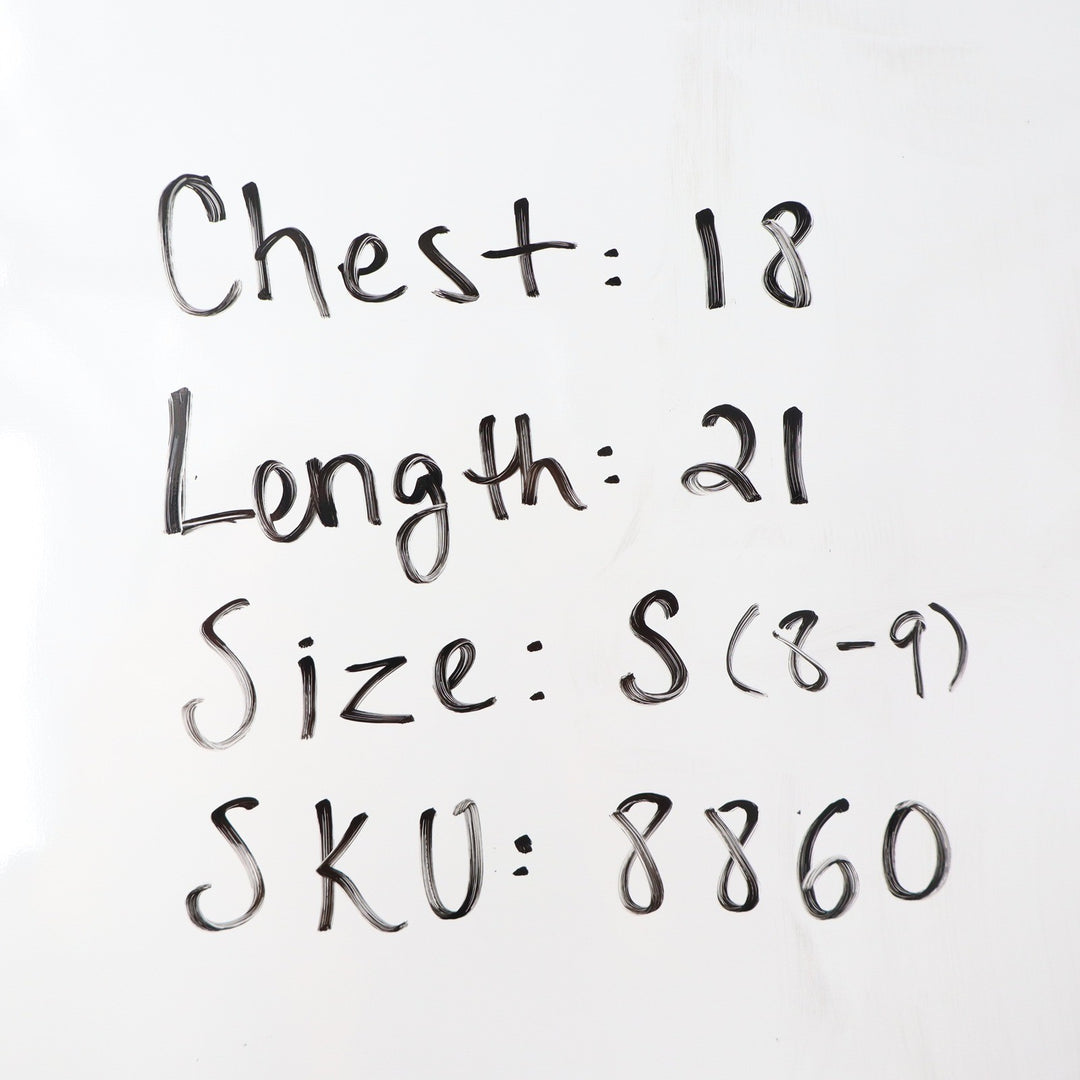 Chest: 18
Length: 21
Size: S (8-9)
SKU: 8860